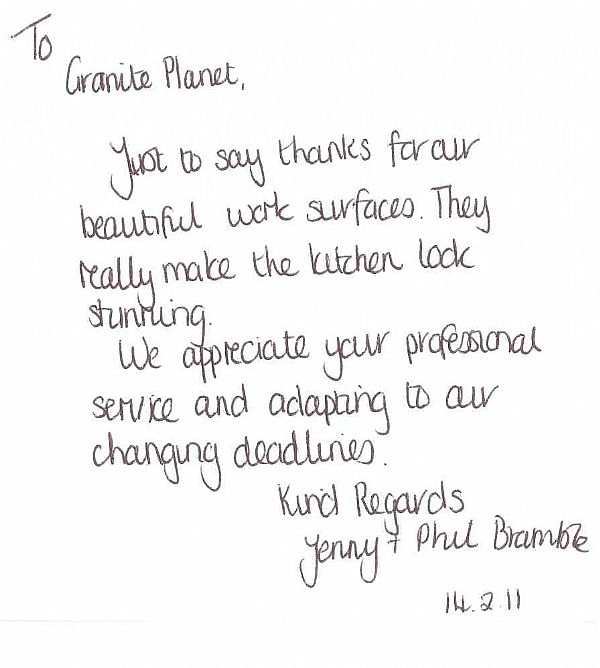 To
Granite Planet,
Just to say thanks for our
beautiful work surfaces. They
really make the kitchen look
stunning.
We appreciate your professional
service and adapting to our
changing deadlines.
Kind Regards
Jenny + Phil Bramble
14.2.11